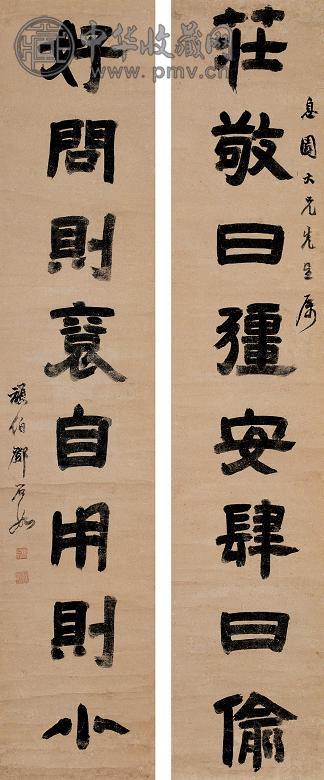 中华收藏网
www.pmv.cn
息園大兄先生属
莊敬日彊安肆日偷
好問則裕自用則小
頑伯鄧石如